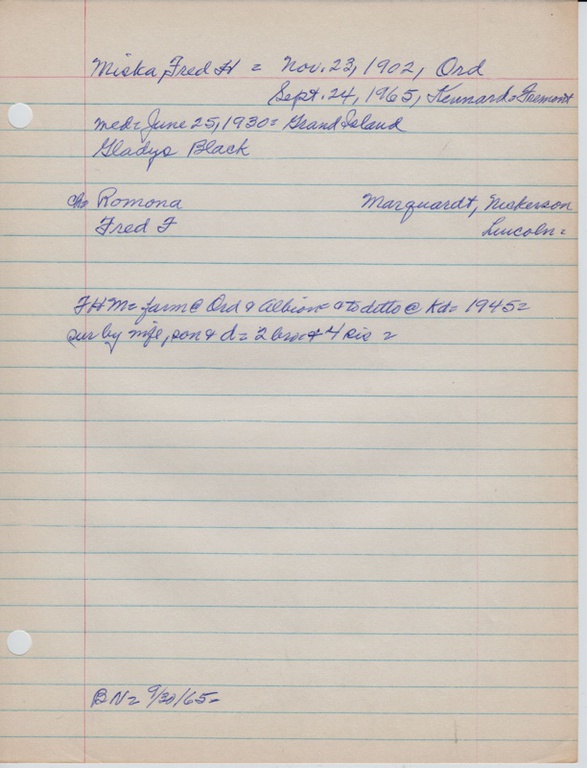 Miska, Fred H = Nov. 23, 1902, Ord
Sept. 24, 1965, Kennard = Fremont
med = June 25, 1930 = Grand Island
Gladys Black
ch = Romona Marquardt, Nickerson
Fred F Lincoln =
FHM = farm @ Ord & Albion = to ditto @ Kd = 1945 =
sur by wife, son & d = 2 bro & 4 sis =
BN = 9/30/65 =